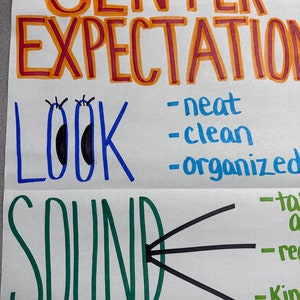 CENTER
EXPECTATION
LOOK
-neat
-clean
-organized
SOUND
-ta
a
-re
-Kin